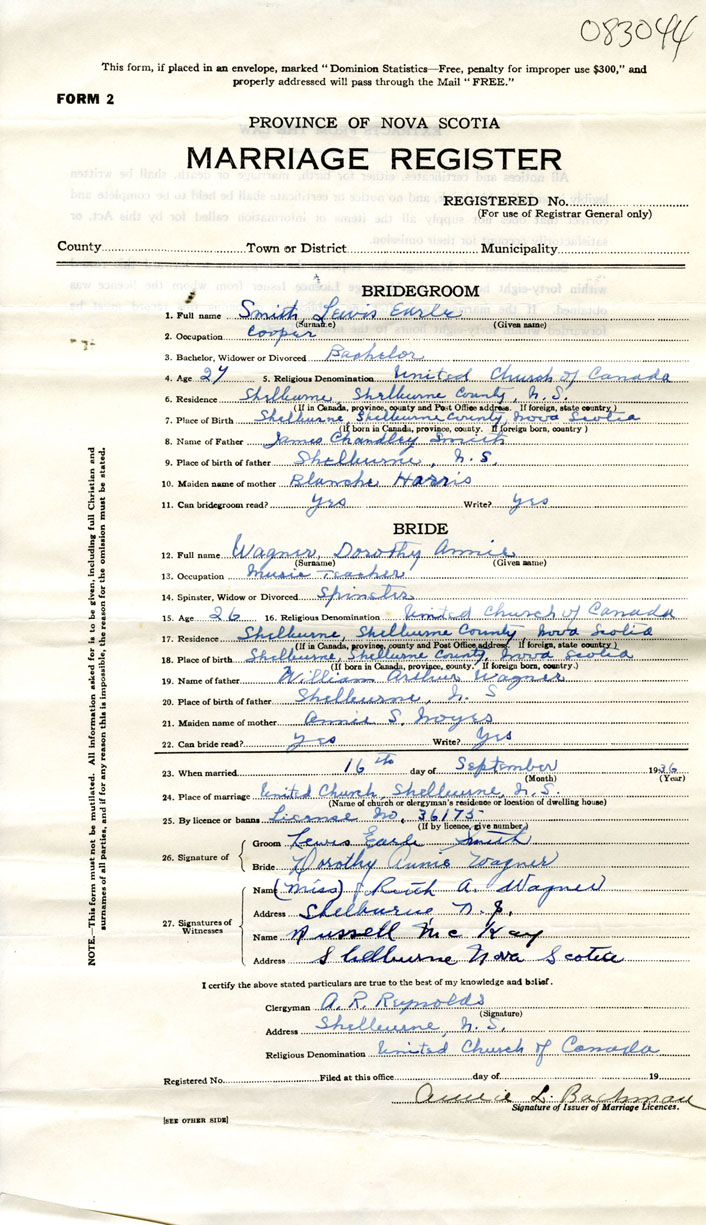 083044
This form, if placed in an envelope, marked "Dominion Statistics—Free, penalty for improper use $300," and
properly addressed will pass through the Mail "FREE."
FORM 2
PROVINCE OF NOVA SCOTIA
MARRIAGE REGISTER
REGISTERED No.
(For use of Registrar General only)
County Town or District Municipality
BRIDEGROOM
1. Full name Smith Lewis Earle
(Surname) (Given name)
2. Occupation Cooper
3. Bachelor, Widower or Divorced Bachelor
4. Age 27 5. Religious Denomination United Church of Canada
6. Residence Shelburne, Shelburne County, N.S.
(If in Canada, province, county and Post Office address. If foreign, state country.)
7. Place of Birth Shelburne Shelburne County, Nova Scotia
(If born in Canada, province, county. If foreign born, country)
8. Name of Father James Chandley Smith
9. Place of birth of father Shelburne, N.S.
10. Maiden name of mother Blanche Harris
11. Can bridegroom read? Yes Write? Yes
BRIDE
12. Full name Wagner, Dorothy Annie
(Surname) (Given name)
13. Occupation Music Teacher
14. Spinster, Widow or Divorced Spinster
15. Age 26 16. Religious Denomination United Church of Canada
17. Residence Shelburne, Shelburne County Nova Scotia
(If in Canada, province, county and Post Office address, If foreign, state country.)
18. Place of birth Shelburne, Shelburne County, Nova Scotia
(If born in Canada, province, county. If foreign born, country.)
19. Name of father William Arthur Wagner
20. Place of birth of father Shelburne, N. S
21. Maiden name of mother Annie S. Noyes
22. Can bride read? Yes Write? Yes
23. When married 16th day of September 1936
(Month) (Year)
24. Place of marriage United Church, Shelburne, N.S.
(Name of church or clergyman's residence or location of dwelling house)
25. By licence or banns License No. 36175
(If by licence, give number)
26. Signature of
Groom Lewis Earle Smith
Bride Dorothy Annie Wagner
27. Signatures of
Witnesses
Name (Miss) Ruth A. Wagner
Address Shelburne N.S.
Name Russell McKay
Address Shelburne Nova Scotia
I certify the above stated particulars are true to the best of my knowledge and belief.
Clergyman A. R. Reynolds
(Signature)
Address Shelburne, N.S.
Religious Denomination United Church of Canada
Registered No. Filed at this office day of 19
Annie L. Bachman
Signature of Issuer of Marriage Licences.
[SEE OTHER SIDE]
NOTE.—This form must not be mutilated. All information asked for is to be given, including full Christian and
surnames of all parties, and if for any reason this is impossible, the reason for the omission must be stated.